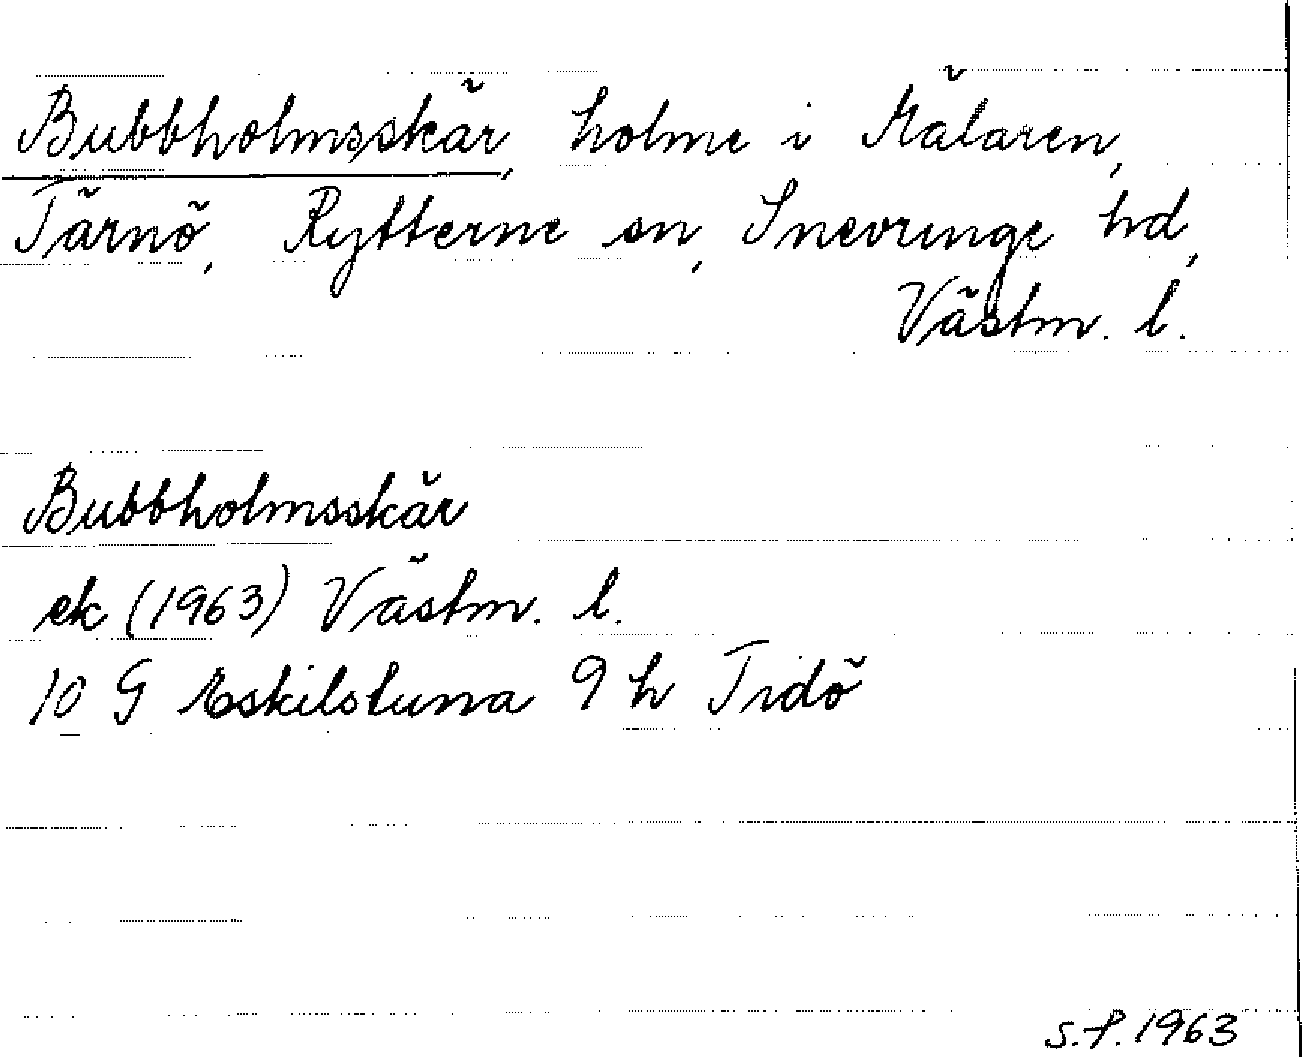 Bubbholmsskär, holme i Mälaren,
Tärnö, Rytterne sn, Snevringe hd,
Västm. l.
Bubbholmsskär
ek (1963) Västm. l.
10 G Eskilstuna 9 h Tidö
S.F. 1963